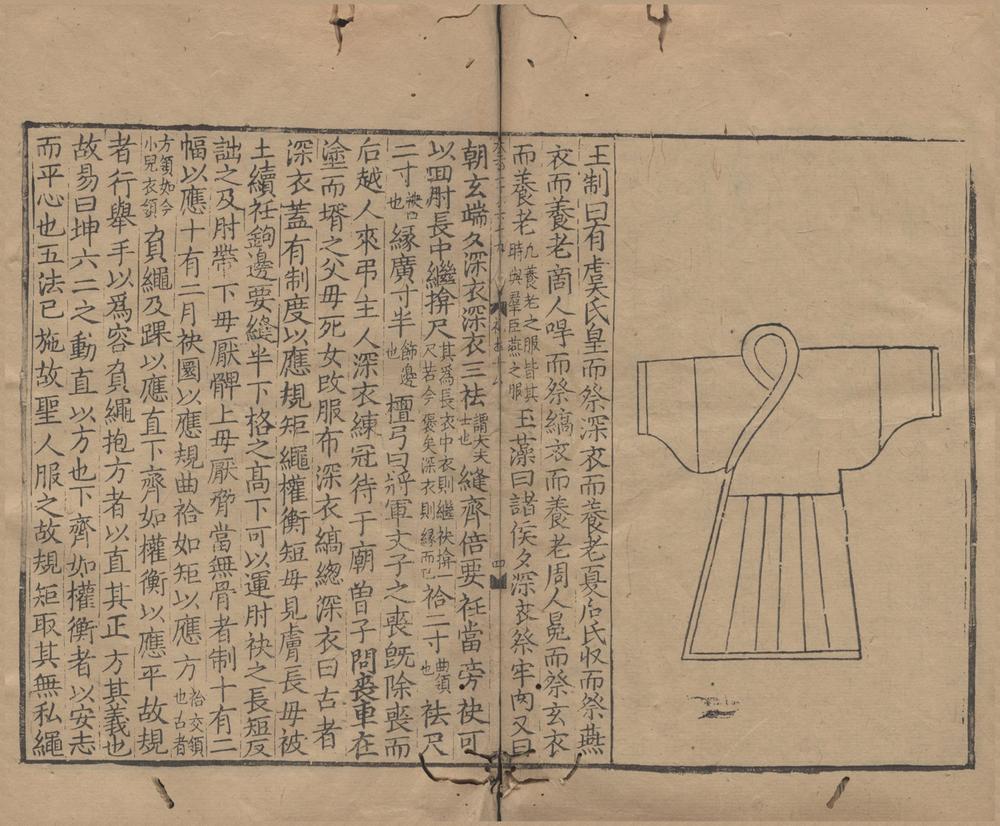 王制曰有虞氏皇而祭深衣而養老夏后氏収而祭燕
衣而養老商人冔而祭縞衣而養老周人冕而祭玄衣
而養老凡養老之服皆其時與羣臣燕之服玉藻曰諸侯夕深衣祭牢肉又曰
四
朝玄端夕深衣深衣三袪謂大夫士也縫齊倍要衽當旁袂可
以回肘長中繼揜尺其爲長衣中衣則繼袂揜一尺若今褎矣深衣則緣而已袷二寸曲領也袪尺
二寸袂口也緣廣寸半飾邊也檀弓曰將軍文子之喪旣除喪而
后越人來弔主人深衣練冠待于廟曾子問喪車在
塗而壻之父母死女改服布深衣縞緫深衣曰古者
深衣蓋有制度以應規矩繩權衡短毋見膚長毋被
土續衽鉤邊要縫半下格之高下可以運肘袂之長短反
詘之及肘帶下毋厭髀上毋厭脅當無骨者制十有二
幅以應十有二月袂圜以應規曲袷如矩以應方袷交領也古者
方領如今小兒衣領負繩及踝以應直下齊如權衡以應平故規
者行舉手以爲容負繩抱方者以直其正方其義也
故易曰坤六二之動直以方也下齊如權衡者以安志
而平心也五法已施故聖人服之故規矩取其無私繩